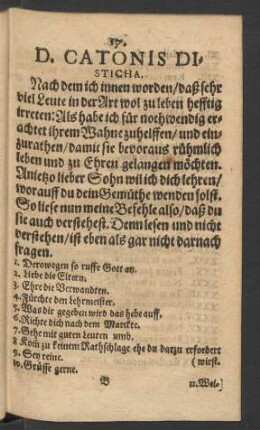 17.
D. CATONIS DI-
STICHA.
Nach dem ich innen worden/daß sehr
viel Leute in der Art wol zu leben hefftig
irreten: Als habe ich für nothwendig er-
achtet ihrem Wahne zuhelffen/ und ein-
zurathen/damit sie bevoraus rühmlich
leben und zu Ehren gelangen möchten.
Anietzo lieber Sohn wil ich dich lehren/
worauff du dein Gemüthe wenden solst.
So liese nun meine Befehle also/ daß du
sie auch verstehest. Denn lesen und nicht
verstehen/ ist eben als gar nicht darnach
fragen.
1. Derowegen so ruffe Gott an.
2. Liebe die Eltern.
3. Ehre die Verwandten.
4. Fürchte den Lehrmeister.
5. Was dir gegeben wird das hebe auff.
6. Richte dich nach dem Marckte.
7. Gehe mit guten Leuten umb.
8 Kom zu keinem Rathschlage ehe du darzu erfordert
9. Sey reine. (wirst.
10. Grüsse gerne.
B 11. Wei-]